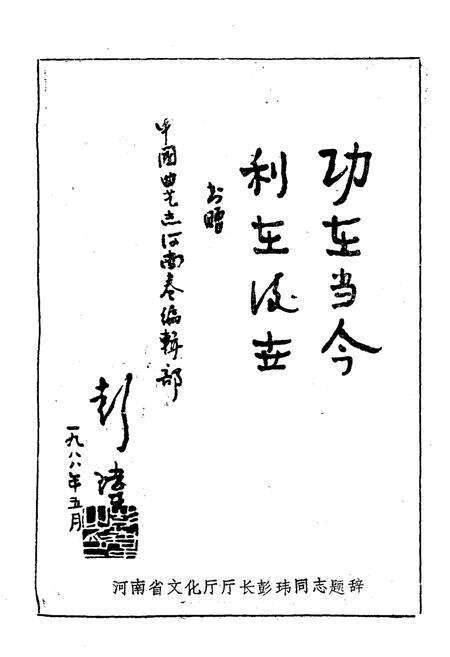 功在当今
利在後世
书赠
中國曲艺志河南卷编輯部
彭玮
一九八八年五月
河南省文化厅厅长彭玮同志题辞